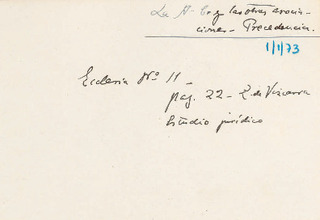 La A- C. y las otras asocia-
ciones - Precedencia.
1/1/73
Ecclesia Nº 11 -
pag. 22 - Z. de Vizcarra
Estudio jurídico